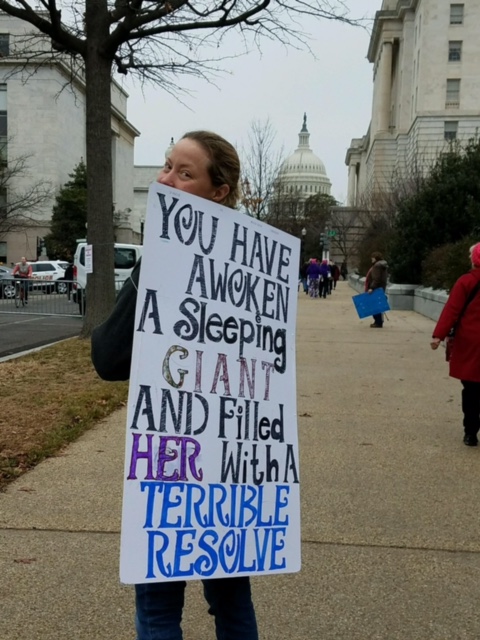 YOU HAVE
AWOKEN
A Sleeping
GIANT
AND Filled
HER With A
TERRIBLE
RESOLVE